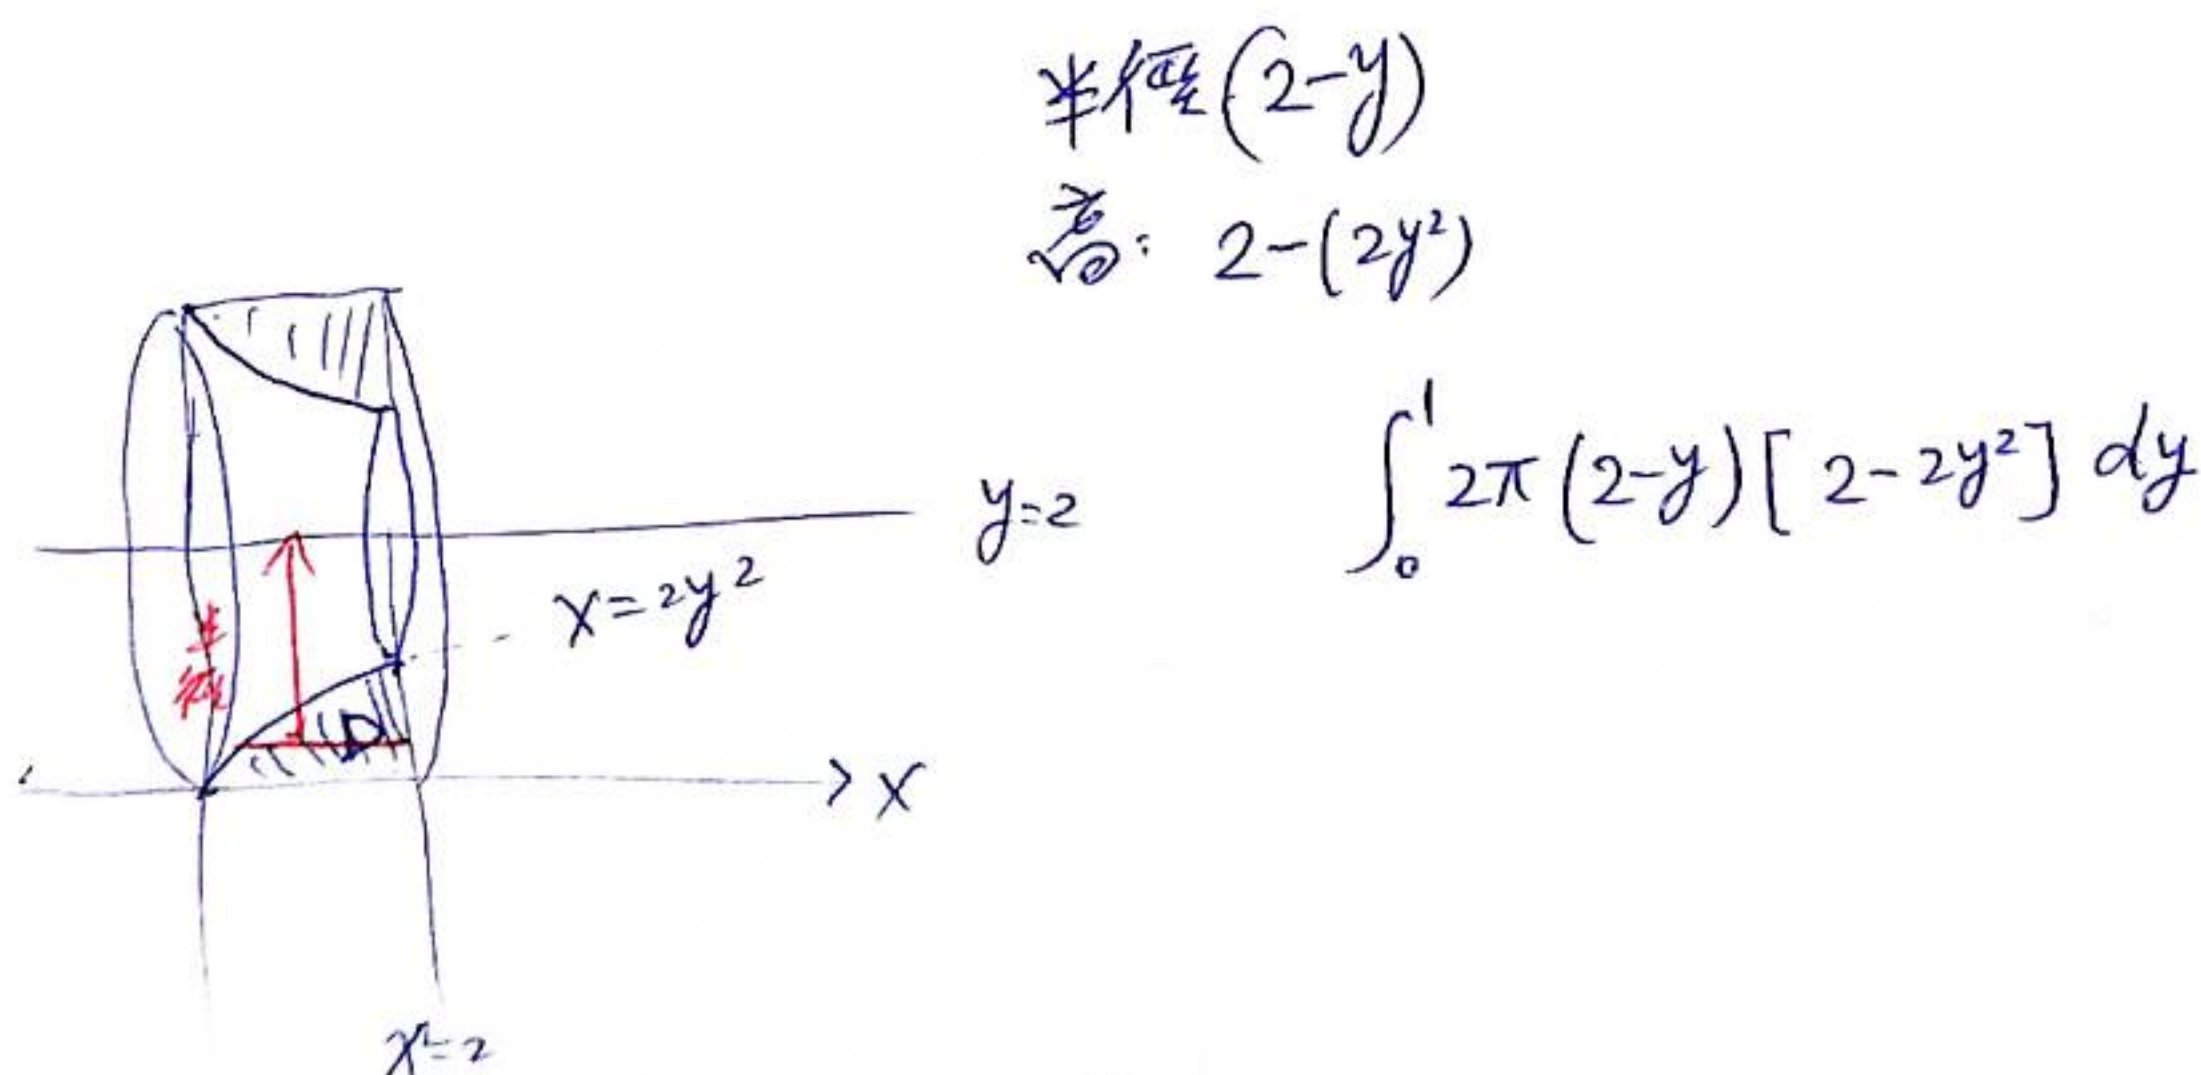 半徑(2-y)
高: 2-(2y²)
y=2
∫₀¹ 2π(2-y)[2-2y²] dy
x=2y²
半徑
D
x
x=2